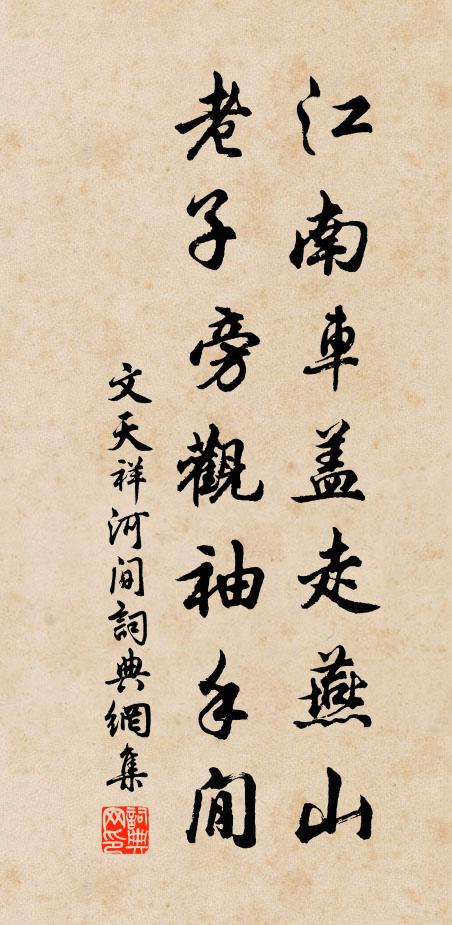 江南車蓋走燕山
老子旁觀袖手間
文天祥河間詞典網集
詞典網印